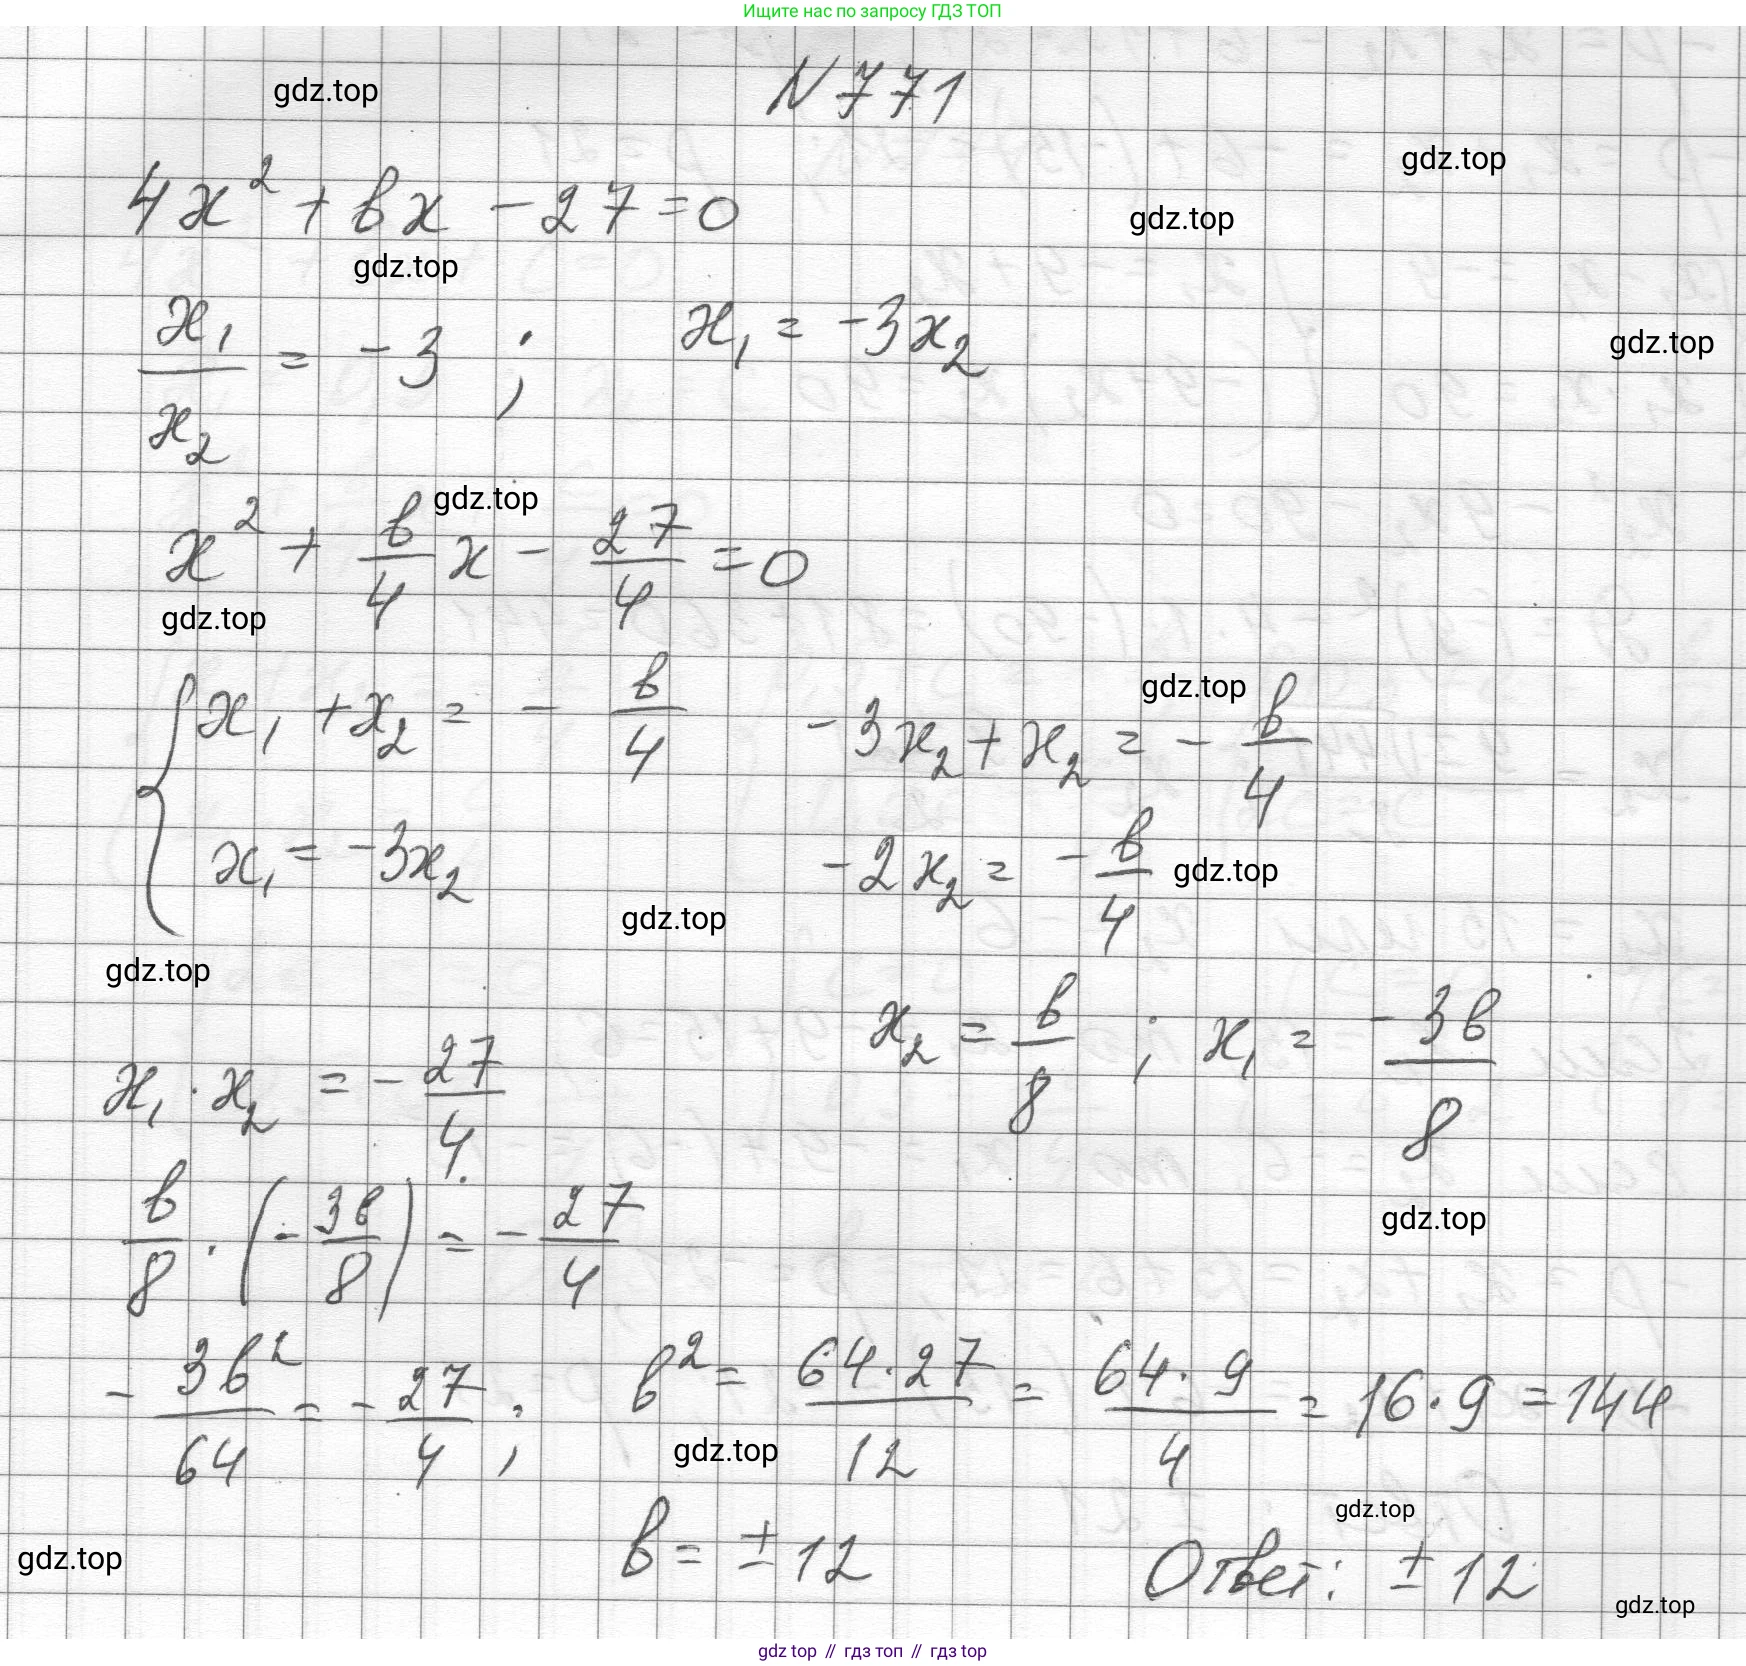 Ищите нас по запросу ГДЗ ТОП
N 771
gdz.top
gdz.top
4x² + bx - 27 = 0
gdz.top
gdz.top
x₁/x₂ = -3 ; x₁ = -3x₂
gdz.top
x² + b/4 x - 27/4 = 0
gdz.top
gdz.top
{ x₁ + x₂ = - b/4
x₁ = -3x₂
gdz.top
-3x₂ + x₂ = - b/4
-2x₂ = - b/4
gdz.top
gdz.top
gdz.top
x₂ = b/8 ; x₁ = -3b/8
x₁ · x₂ = - 27/4
b/8 · (- 3b/8) = - 27/4
gdz.top
- 3b²/64 = - 27/4 ; b² = 64·27/12 = 64·9/4 = 16·9 = 144
gdz.top
gdz.top
b = ±12
Ответ: ±12
gdz.top
gdz.top
gdz top // гдз топ // гдз top